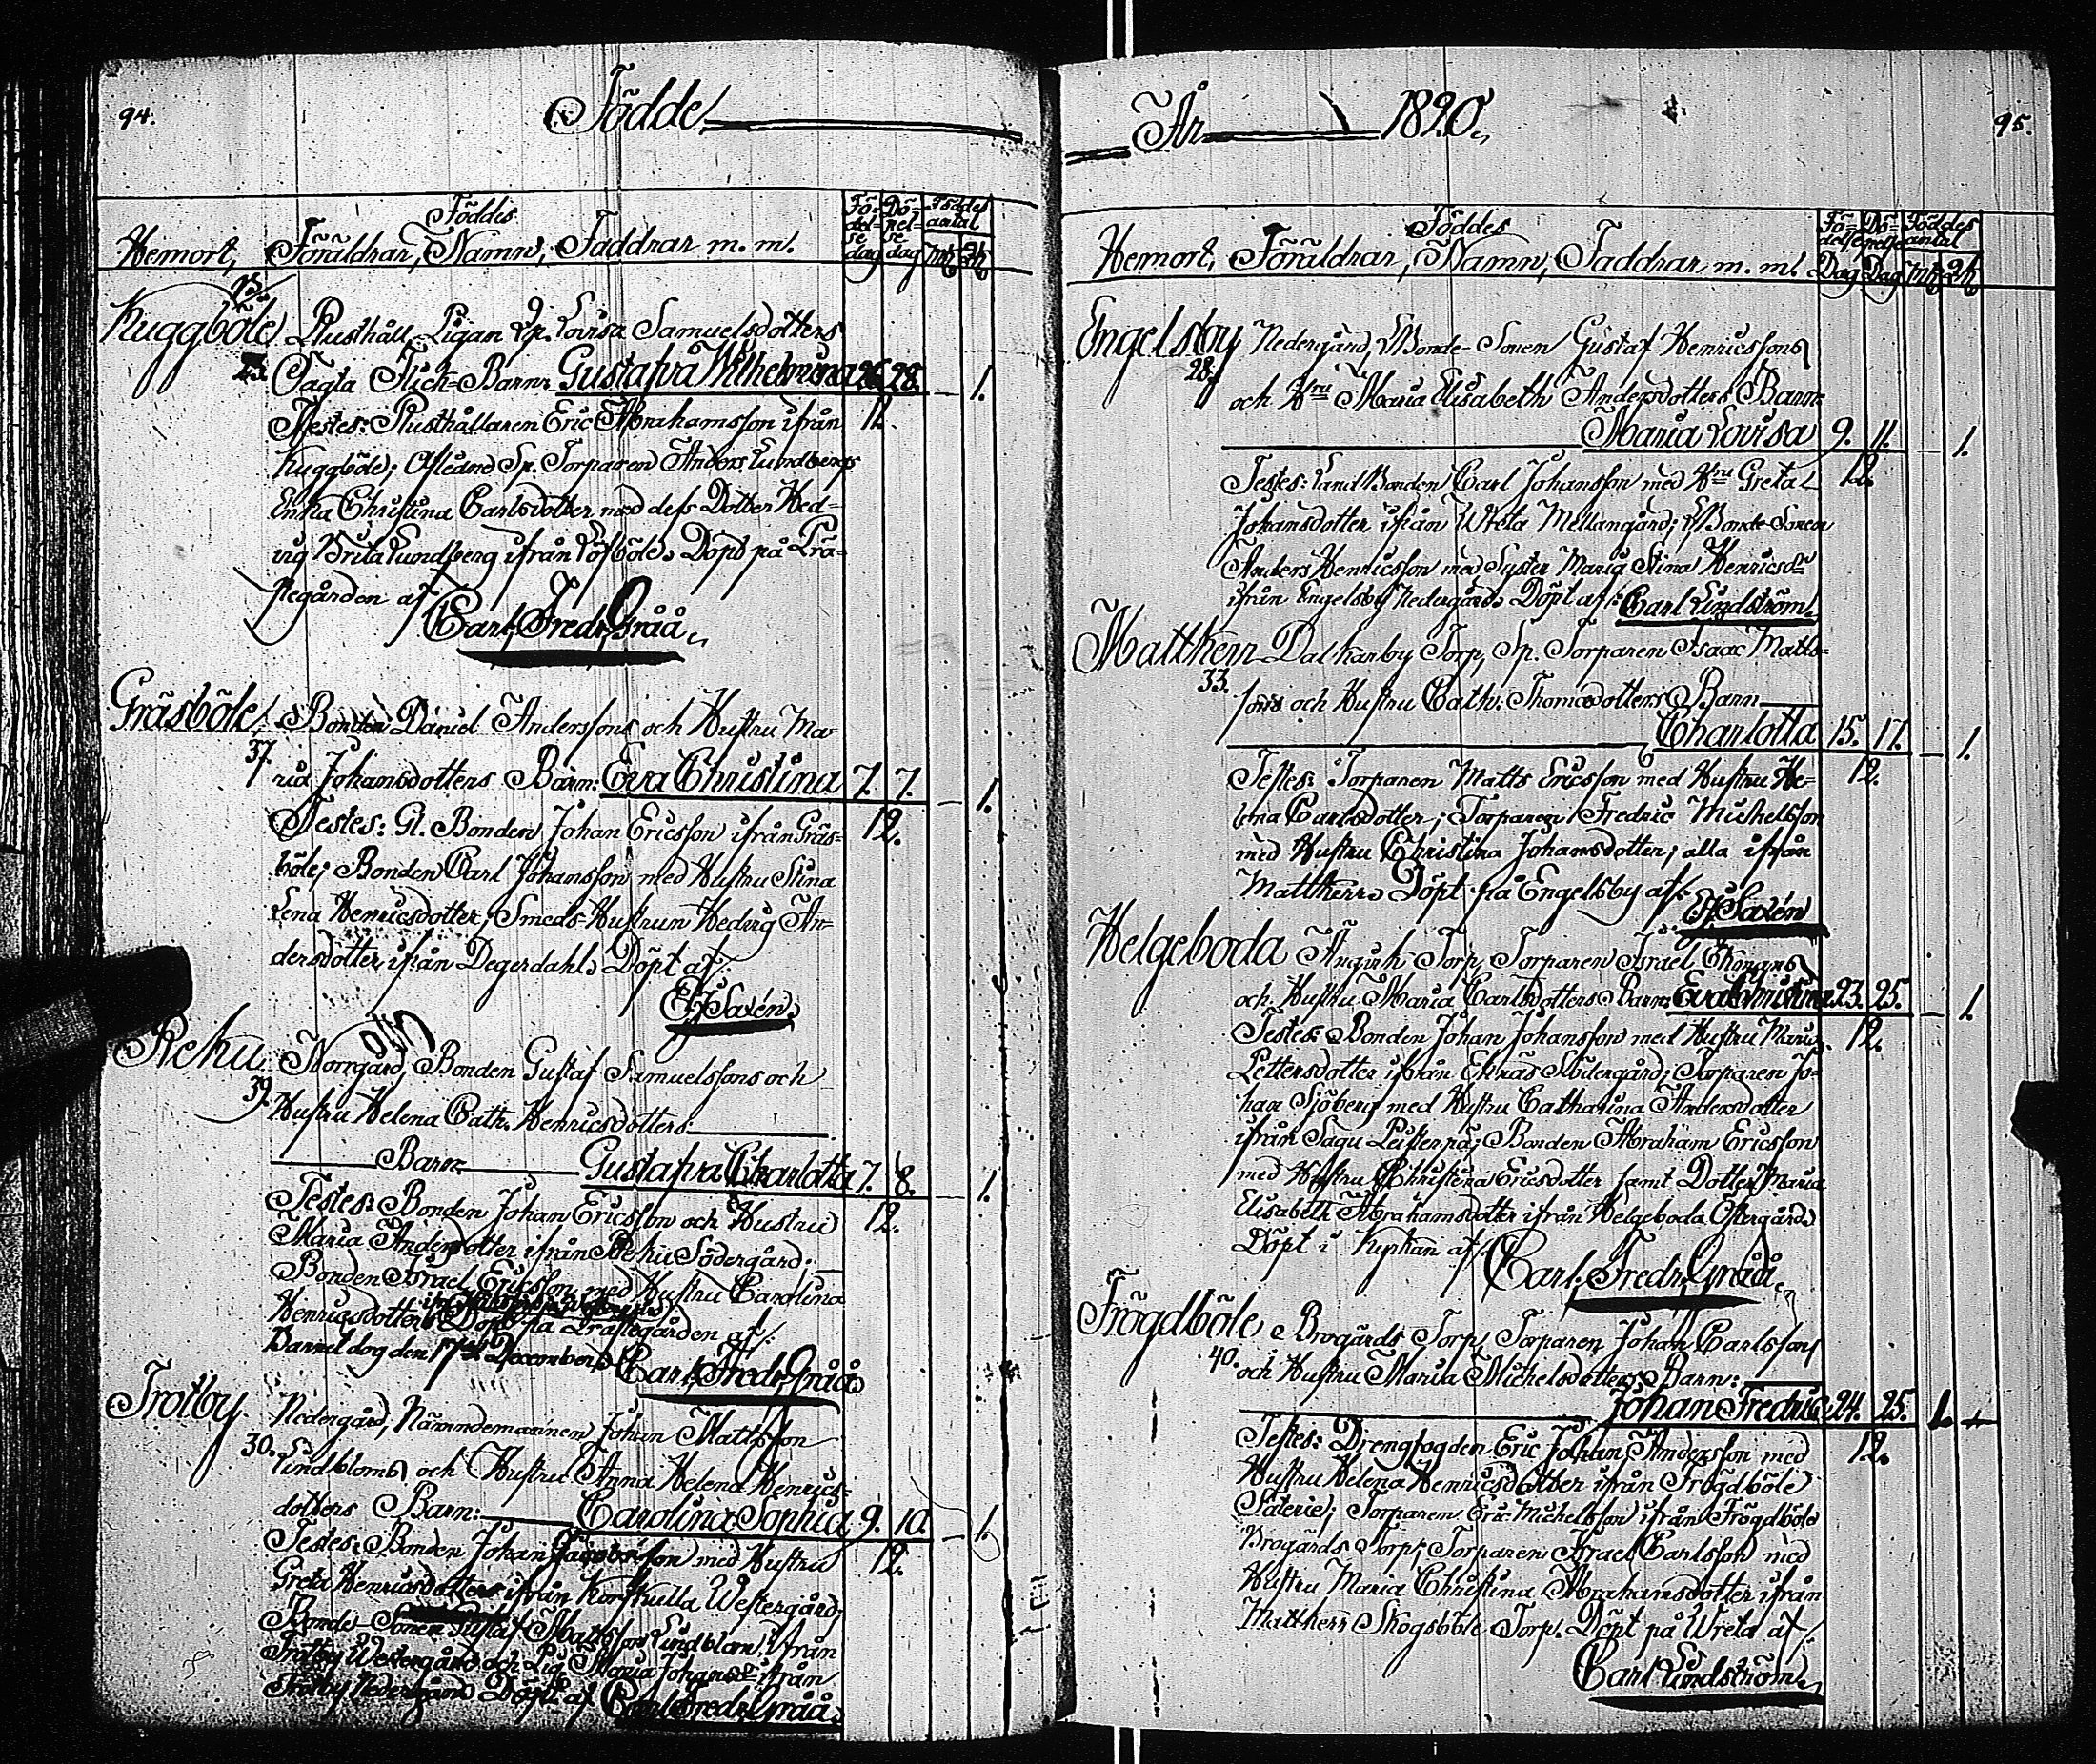 94.
Födde
Hemort, Föräldrar, Föddes Namn, Faddrar m. m.
Fö-
del-
se
dag
Dö-
pel-
se
dag
Föddes
antal
Kuggböle, Rusthåll, Pigan Lovisa Samuelsdotters
23. Flick-Barn: Gustafva Wilhelmina 26. 28. — 1.
Testes: Rusthållaren Eric Abrahamsson ifrån 11.
Kuggböle; Aflidne Sp. Torparen Anders Lundbergs
Enka Christina Carlsdotter med dess Dotter Hed-
vig Brita Lundberg ifrån Löfböle. Döpt på Prä-
stegården af
Carl Fredr. Gråå.
Gräsböle, Bonden Daniel Anderssons och Hustru Ma-
37.
ria Johansdotters Barn: Eva Christina 7. 7. — 1.
Testes: Gl. Bonden Johan Ericsson ifrån Gräs- 12.
böle; Bonden Carl Johansson med Hustru Stina
Lena Henricsdotter; Smeds Hustrun Hedvig An-
dersdotter ifrån Degerdahl. Döpt af
Saxén.
Reku Norrgård, Bonden Gustaf Samuelssons och
39. Hustru Helena Cath. Henricsdotters
Barn Gustafva Charlotta 7. 8. — 1.
Testes: Bonden Johan Ericsson och Hustru 12.
Maria Andersdotter ifrån Reku Södergård;
Bonden Israel Ericsson med Hustru Carolina
Henricsdotter Döpt på Prästegården af
Barnet dog den 17de December. Carl Fredr. Gråå
Trotby Nedergård, Nämndemannen Johan Mattsson
30. Lindbloms och Hustru Anna Helena Henrics-
dotters Barn: Carolina Sophia 9. 10. — 1.
Testes: Bonden Johan Jacobsson med Hustru 12.
Greta Henricsdotter ifrån Korskulla Westergård;
Bonde-Sonen Gustaf Mattsson Lindblom ifrån
Trotby Westergård och Pig. Maria Johansdr ifrån
Trotby Nedergård Döpt af Carl Fredr. Gråå.
År 1820.
95.
Hemort, Föräldrar, Föddes Namn, Faddrar m. m.
Fö-
delse
Dag
Dö-
pelse
Dag
Föddes
antal
Engelsby Nedergård, Bonde-Sonen Gustaf Henricssons
28.
och Hru Maria Elisabeth Andersdotters Barn
Maria Lovisa 9. 11. — 1.
Testes: Land Bonden Carl Johansson med Hru Greta 12.
Johansdotter ifrån Wreta Mellangård; Bonde-Sonen
Anders Henricsson med Syster Maria Stina Henricsdr
ifrån Engelsby Nedergård. Döpt af: Carl Lindström.
Mattkerr Dalkarby Torp, Sp. Torparen Isaac Matts-
33.
sons och Hustru Cath: Thomasdotters Barn
Charlotta 15. 17. — 1.
Testes: Torparen Matts Ericsson med Hustru He- 12.
lena Carlsdotter; Torparen Fredric Michelsson
med Hustru Christina Johansdotter; alla ifrån
Mattkerr. Döpt på Engelsby af:
Saxén
Helgeboda Torp, Torparen Israel Ekmans
och Hustru Maria Carlsdotters Barn: Eva Christina 23. 25. — 1.
Testes: Bonden Johan Johansson med Hustru Maria 12.
Pettersdotter ifrån Eknäs Södergård; Torparen Jo-
han Sjöberg med Hustru Catharina Andersdotter
ifrån Sagu Peisterpä; Bonden Abraham Ericsson
med Hustru Christina Ericsdotter samt Dotter Maria
Elisabeth Abrahamsdotter ifrån Helgeboda Östergård
Döpt i Kyrkan af
Carl Fredr. Gråå
Frögdböle Brogårds Torp, Torparen Johan Carlssons
40. och Hustru Maria Michelsdotters Barn:
Johan Fredric 24. 25. 1. —
Testes: Drengfogden Eric Johan Andersson med 12.
Hustru Helena Henricsdotter ifrån Frögdböle
Säterie; Torparen Eric Michelsson ifrån Frögdböle
Brogårds Torp; Torparen Israel Carlsson med
Hustru Maria Christina Abrahamsdotter ifrån
Mattkerr Skogsböle Torp. Döpt på Wreta af
Carl Lindström.